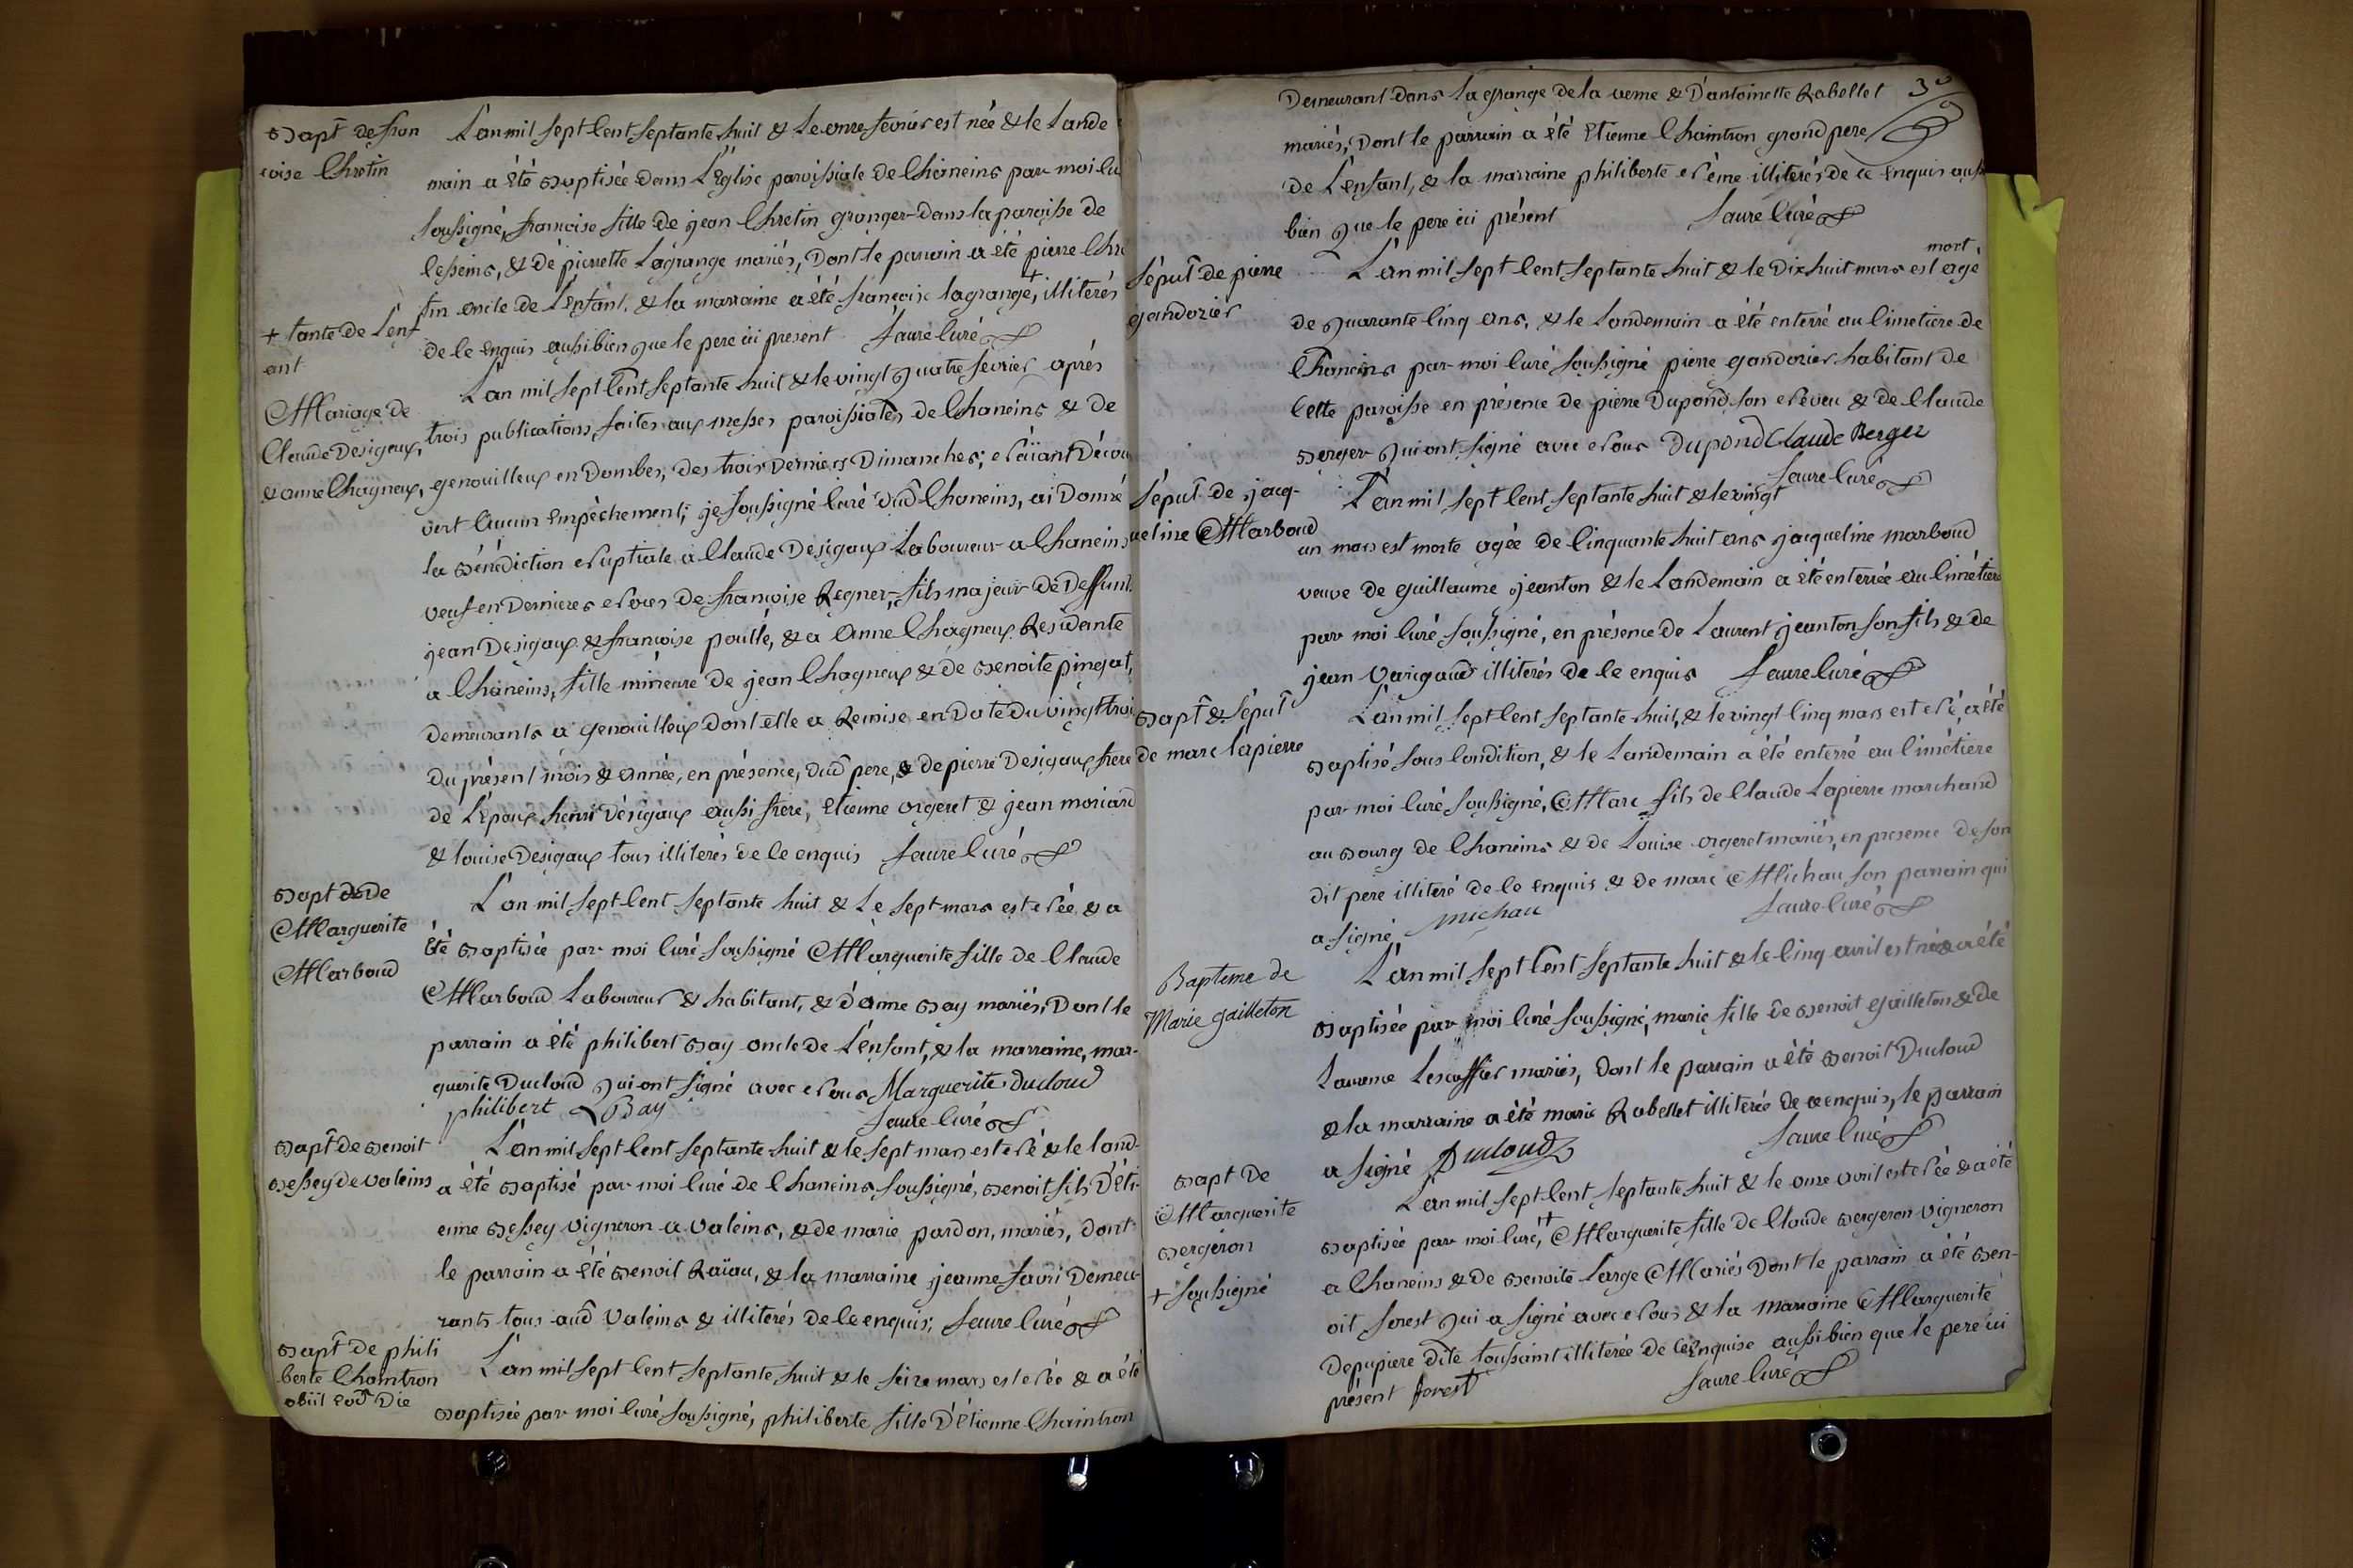 Bapt de fran
çoise Chretin
L'an mil sept cent septante huit & le onze fevrier est née & le lande
main a été baptisée dans L'Eglise paroissiale de Chaneins par moi cu
soussigné, françoise fille de jean Chretin granger dans la paroisse de
Cesseins, & de pierrette Lagrange mariés, Dont le parrain a été pierre Chre
tin oncle de L'enfant, & la marraine a été françoise lagrange + illiterés
de ce enquis aussi bien que le pere ici present faure Curé
+ tante de L'enf
ant
Mariage de
Claude Desigaux,
& anne Chagneux,
L'an mil sept Cent septante huit & le vingt quatre fevrier après
trois publications faites aux messes paroissiales de Chaneins & de
genouilleux en Dombes, des trois Derniers Dimanches; n'aïant Décou
vert aucun Empêchement; je soussigné Curé dud Chaneins, ai Donné
la Bénédiction Nuptiale a Claude Desigaux Laboureur a Chaneins
veuf en Dernieres Noces de françoise Regner, fils majeur de Deffunt
jean Desigaux & françoise poullé, & a Anne Chagneux Residante
a Chaneins, fille mineure de jean Chagneux & de Benoite pinejat,
Demeurants a genouilleux Dont elle a Remise en Date du vingt trois
Du présent mois & année, en présence, dud pere, & de pierre Desigaux frere
de L'Epoux henri Désigaux aussi frere, Etienne orgeret & jean moriard
& louise Desigaux tous illiterés de ce enquis faure Curé
Bapt de
Marguerite
Marboud
L'an mil sept Cent septante huit & Le sept mars est Née & a
été Baptisée par moi Curé soussigné Marguerite fille de Claude
Marboud Laboureur & habitant, & d'anne Bay mariés, Dont le
parrain a été philibert Bay oncle de L'enfant, & la marraine, mar-
guerite Ducloud qui ont signé avec Nous Marguerite ducloud
philibert Bay faure Curé
Bapt de Benoit
Bessey de valeins
L'an mil sept Cent septante huit & le sept mars est Né & le land-
a été Baptisé par moi Curé de Chaneins soussigné, Benoit fils D'éti-
enne Bessey vigneron a Valeins, & de marie pardon, mariés, dont
le parrain a été Benoit Raïau, & la marraine jeanne favri Demeu-
rants tous aud Valeins & illiterés de ce enquis; faure Curé
Bapt de phili
berte Chaintron
obiit Eod Die
L'an mil sept Cent septante huit & le seize mars est Née & a été
Baptisée par moi Curé soussigné, philiberte fille D'étienne Chaintron
30
Demeurant dans La grange de la verne & D'antoinette Rabellet
mariés, Dont le parrain a été Etienne Chaintron grand pere
de L'enfant, & la marraine philiberte Nême illiterés de ce Enquis aussi
bien que le pere ici présent faure Curé
Sépult de pierre
gandozier
L'an mil sept Cent septante huit & le Dix huit mars est mort agé
de quarante Cinq ans, & le Landemain a été enterré au Cimetiere de
Chaneins par moi Curé soussigné pierre gandozier habitant de
Cette paroisse en présence de pierre Dupond son Neveu & de Claude
Berger qui ont signé avec Nous Dupond Claude Berger
faure Curé
Sépult de jacq-
ueline Marboud
L'an mil sept Cent septante huit & le vingt
un mars est morte agée de Cinquante huit ans jacqueline marboud
veuve de guillaume jeanton & le Landemain a été enterrée au Cimétiere
par moi Curé soussigné, en présence de Laurent jeanton son fils & de
jean Varigaud illiterés de ce enquis faure Curé
Bapt & Sépult
de marc lapierre
L'an mil sept Cent septante huit, & le vingt Cinq mars est Né, a été
Baptisé sous Condition, & le Landemain a été enterré au Cimétiere
par moi Curé soussigné, Marc fils de Claude Lapierre marchand
au Bourg de Chaneins & de Louise orgeret mariés, en presence de son
dit pere illiteré de ce enquis & de marc Michau son parrain qui
a signé Michau faure Curé
Bapteme de
Marie gailleton
L'an mil sept Cent septante huit & le Cinq avril est née & a été
Baptisée par moi Curé soussigné, marie fille de Benoit gailleton & de
Laurence Lescoffier mariés, Dont le parrain a été Benoit Ducloud
& la marraine a été marie Rabellet illiterée de ce enquis, le parrain
a signé Ducloud faure Curé
Bapt De
Marguerite
Bergeron
+ soussigné
L'an mil sept Cent septante huit & le onze avril est Née & a été
Baptisée par moi Curé, + Marguerite fille de Claude Bergeron vigneron
a Chaneins & de Benoite Large Mariés Dont le parrain a été Ben-
oit forest qui a signé avec Nous & la Marraine Marguerite
Depupiere dite toussaint illiterée de ce Enquise aussi bien que le pere ici
présent forest faure Curé